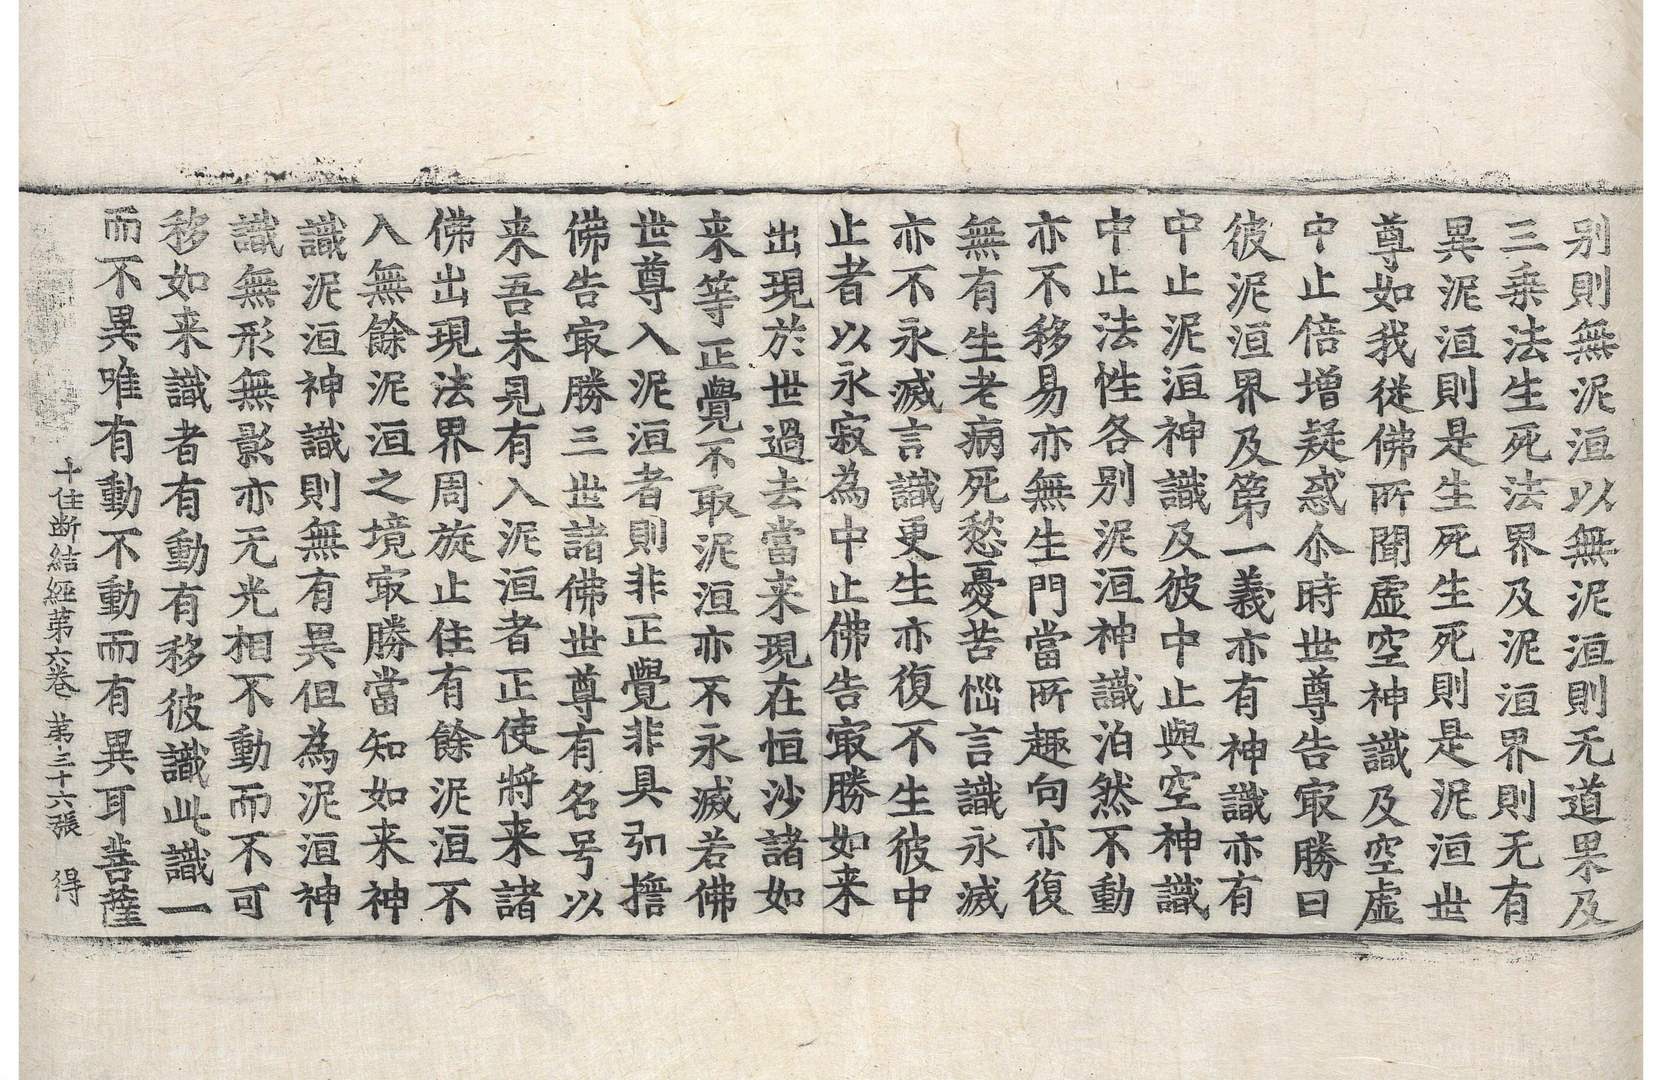 別則無泥洹以無泥洹則无道果及
三乗法生死法界及泥洹界則无有
異泥洹則是生死生死則是泥洹世
尊如我従佛所聞虛空神識及空虛
中止倍增疑惑尒時世尊告㝡勝曰
彼泥洹界及第一義亦有神識亦有
中止泥洹神識及彼中止與空神識
中止法性各別泥洹神識泊然不動
亦不移易亦無生門當所趣向亦復
無有生老病死愁憂苦惱言識永滅
亦不永滅言識更生亦復不生彼中
止者以永寂為中止佛告㝡勝如来
出現於世過去當来現在恒沙諸如
来等正覺不取泥洹亦不永滅若佛
世尊入泥洹者則非正覺非具弘擔
佛告㝡勝三世諸佛世尊有名号以
来吾未見有入泥洹者正使將来諸
佛出現法界周旋止住有餘泥洹不
入無餘泥洹之境㝡勝當知如来神
識泥洹神識則無有異但為泥洹神
識無形無影亦无光相不動而不可
移如来識者有動有移彼識此識一
而不異唯有動不動而有異耳菩薩
十住断結經第六卷 第三十六張 得